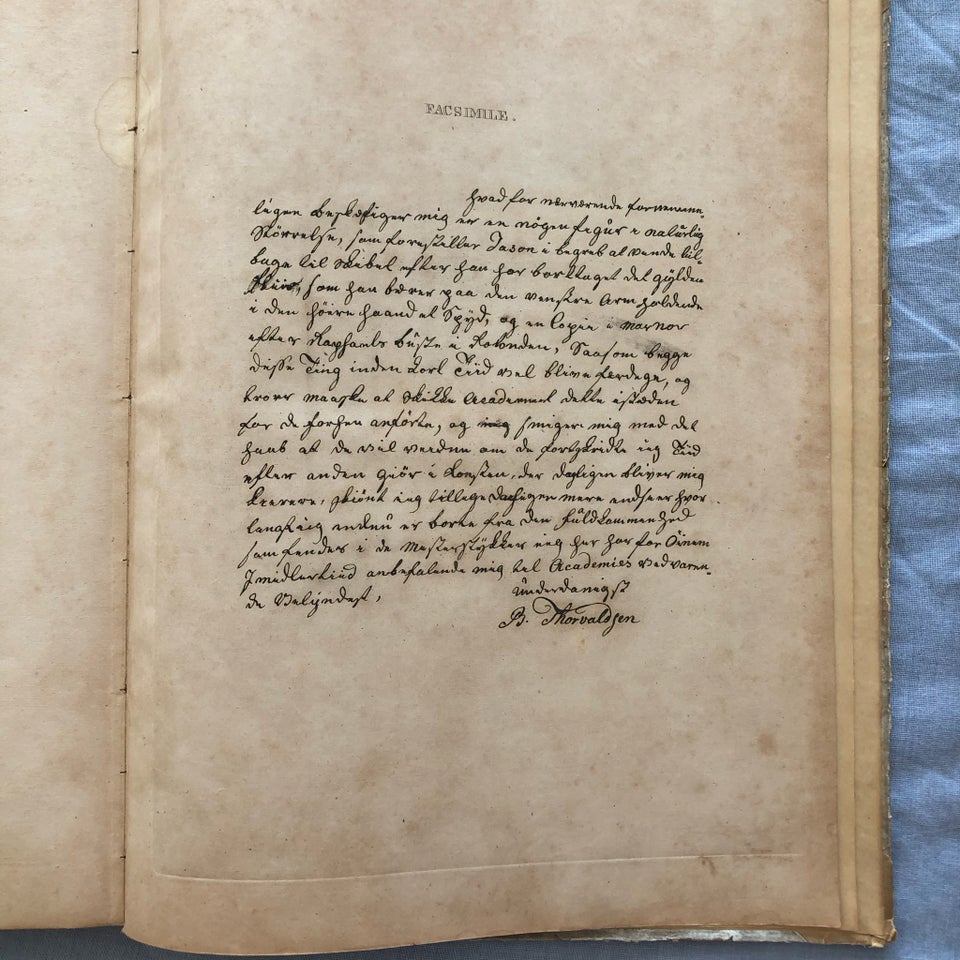 FACSIMILE.
hvad for nærværende fornemme-
ligen beskæftiger mig er en nögen figur i naturlig
Störrelse, som forestiller Jason i begreb at vende til-
bage til Skibet efter han har borttaget det gylden
Skiin, som han bærer paa den venstre Arm holdende
i den höire haand et Spyd, og en Copie i marmor
efter Raphaels büste i Rotonden, Saasom begge
disse Ting inden kort Tiid vel blive ferdege, og
troer maaske at skikke Academiet dette istæden
for de forhen anförte, og smiger mig med det
haab at de vil vende om de fortskridte ieg Tiid
efter anden giör i Konsten, der dagligen bliver mig
kierere, skiönt ieg tillege dagligen mere endseer hvor
langt ieg endnu er borte fra den fuldkommenhed
som fendes i de Mesterstykker ieg her har for Öinem
Imedlertiid anbefalende mig til Academies vedvaren-
de Velyndest,
Underdanigst
B. Thorvaldsen